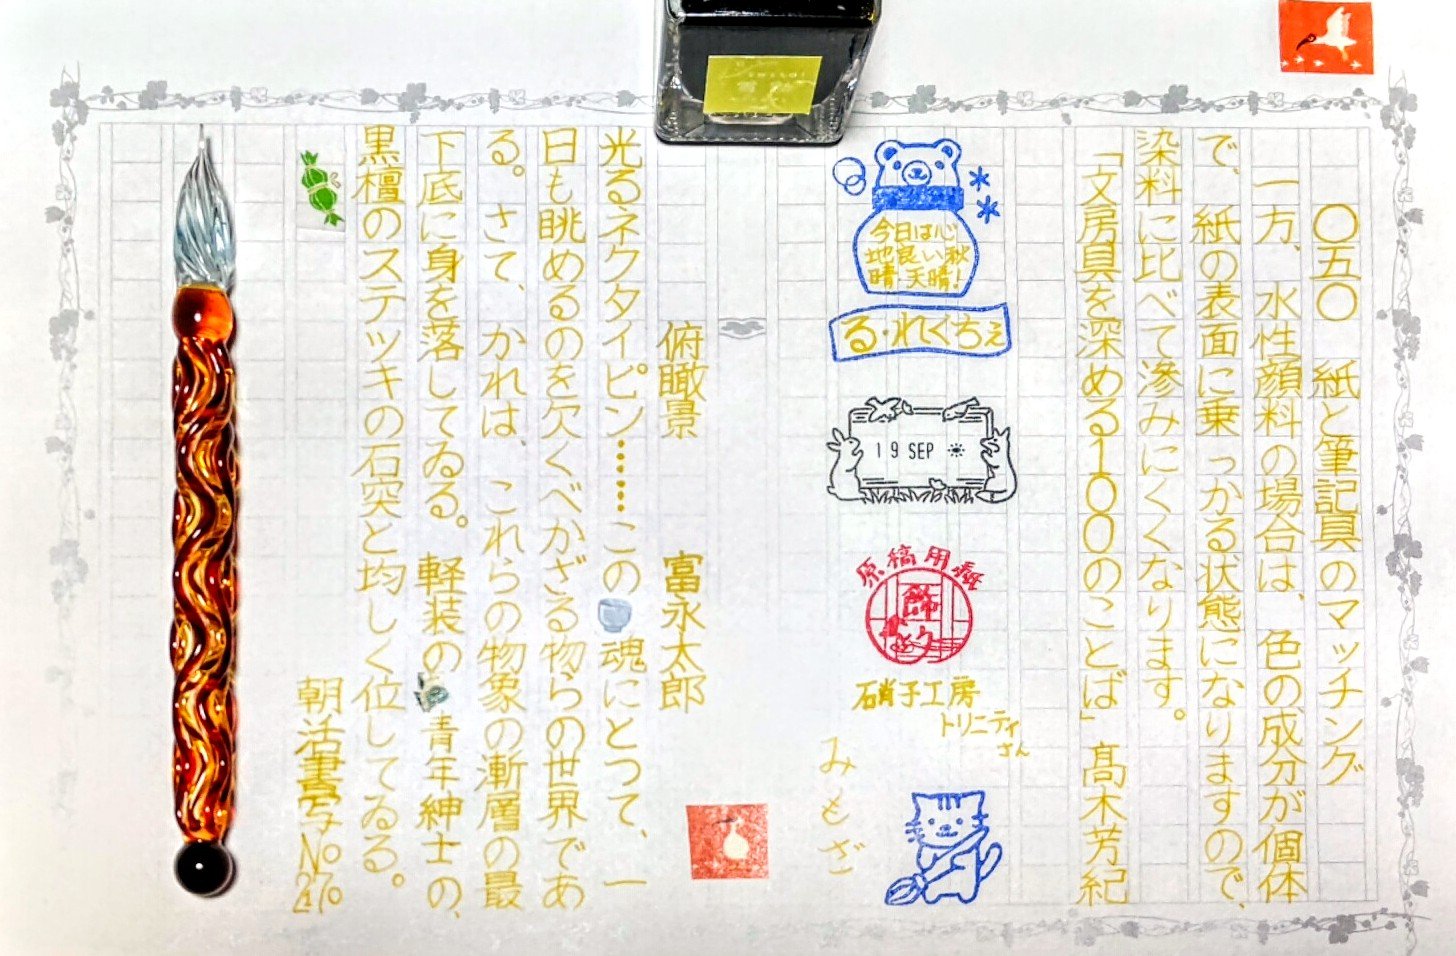 〇五〇　紙と筆記具のマッチング
一方、水性顔料の場合は、色の成分が個体
で、紙の表面に乗っかる状態になりますので、
染料に比べて滲みにくくなります。
「文房具を深める100のことば」髙木芳紀
今日は心
地良い秋
晴・天晴!
る・れくちぇ
19 SEP
原稿用紙
硝子工房
トリニティ
さん
みもざ
俯瞰景　富永太郎
光るネクタイピン……この魂にとつて、一
日も眺めるのを欠くべかざる物らの世界であ
る。さて、かれは、これらの物象の漸層の最
下底に身を落してゐる。軽装の青年紳士の、
黒檀のステッキの石突と均しく位してゐる。
朝活書写No
270